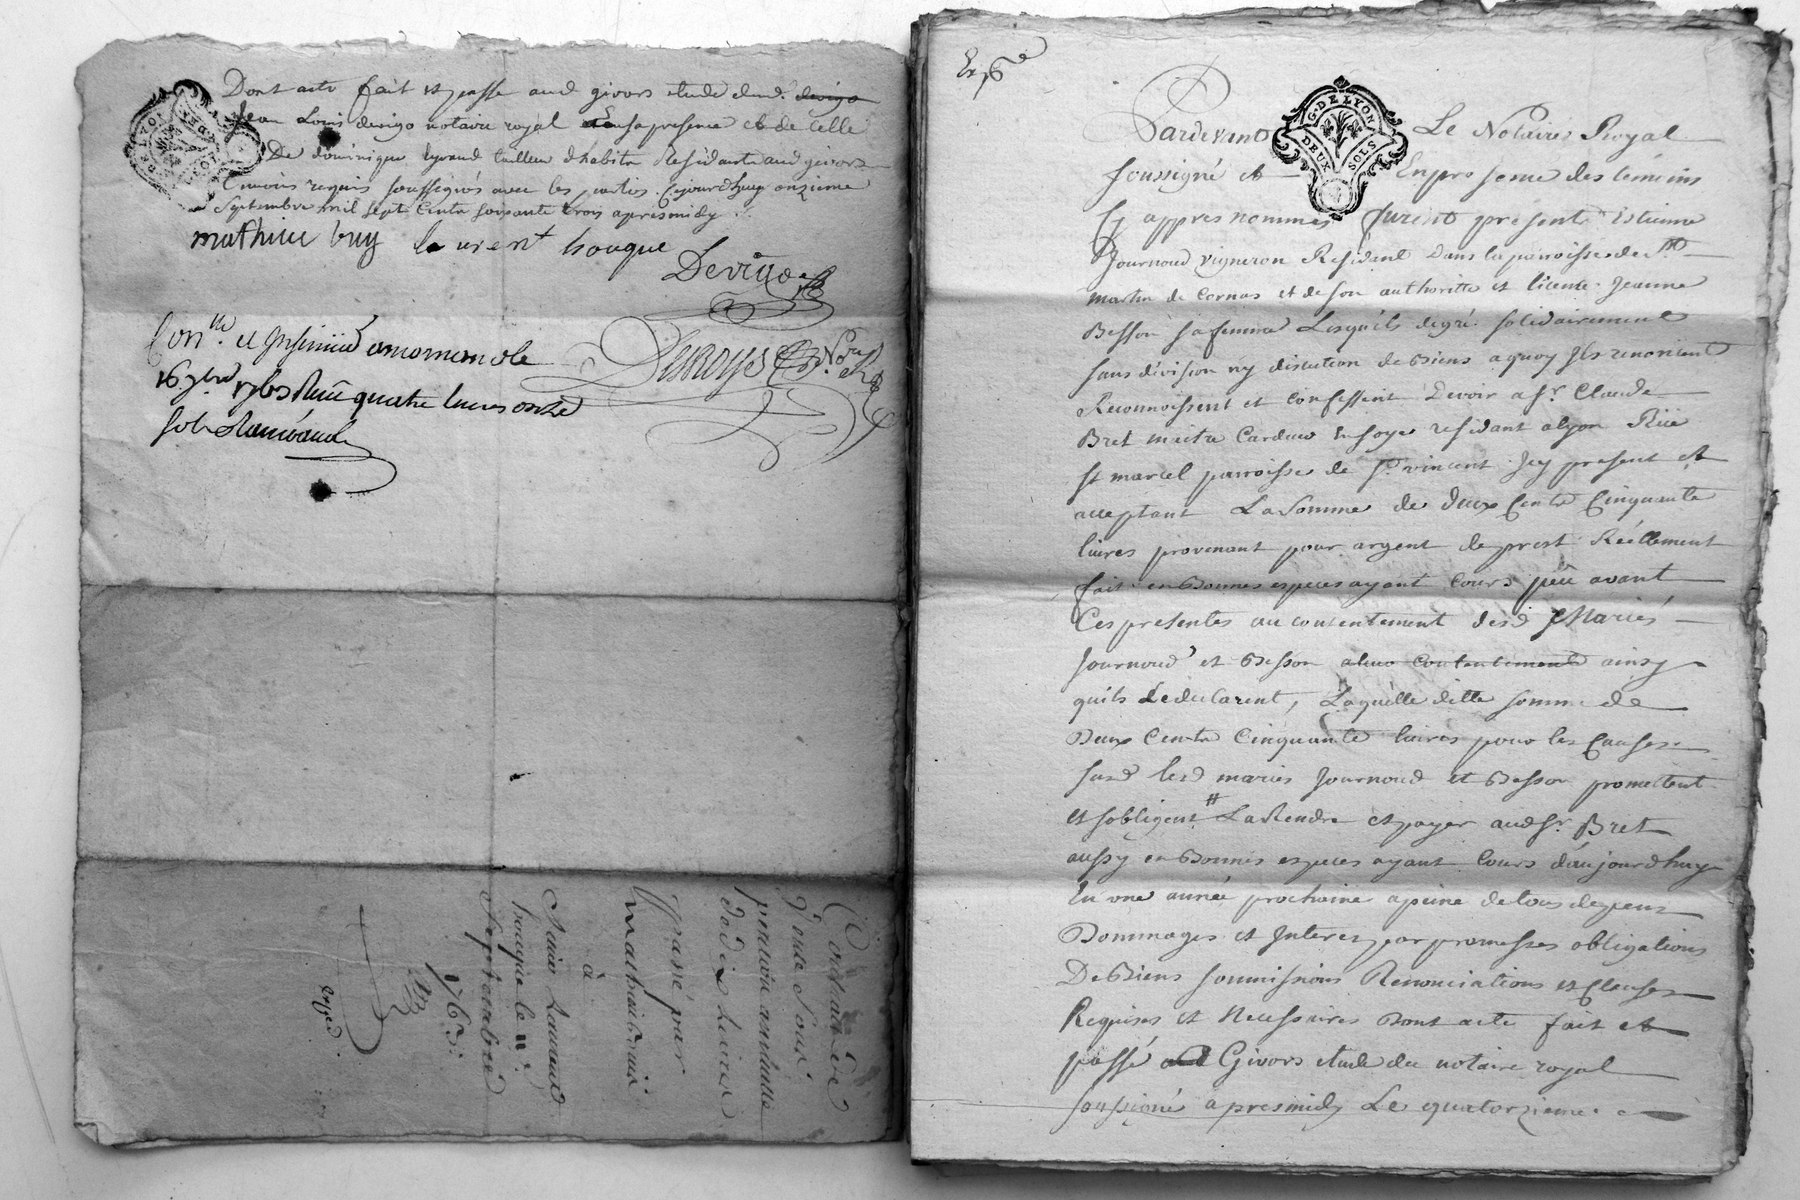 Dont acte fait et passé aud givors etude dud. devigo
Jean Louis devigo notaire royal En sa presence et de celle
De dominique tailleur dhabits Residants aud givors
temoins requis soussignés avec les parties. Cejourdhuy onzieme
Septembre mil sept Cents soixante trois apresmidy
mathieu buy laurent houque
Devigo
Con.lle et Insinué
16 7bre quatre livres onze
sols
G. DE LYON
DEUX SOLS
Pardevant Le Notaire Royal
soussigné et En presence des temoins
Cy appres nommés furent present Estienne
Journoud vigneron Residant Dans la parroisse de St
martin de Cornas et de son authoritté et licence Jeanne
Besson sa femme Lesquels de gré solidairement
sans division ny discution de Biens a quoy Ils renoncent
Reconnoissent et confessent Devoir a Sr. Claude
Bret maitre Cardeur En soye residant a lyon Rüe
St marcel parroisse de St. vincent Icy present et
acceptant La Somme de Deux Cents Cinquante
livres provenant pour argent de prest Réellement
fait en Bonnes especes ayant Cours peu avant
Ces presentes au contentement desd Mariés
Journoud et Besson a leur contentement ainsy
quils Le declarent, Laquelle ditte somme de
Deux Cents Cinquante livres pour les Causes
susd lesd mariés Journoud et Besson promettent
et sobligent # La Rendre et payer aud Sr. Bret
aussy en Bonnes especes ayant Cours daujourdhuy
En une année prochaine a peine de tous depens
Dommages et Interez par promesses obligations
De Biens soumissions Renonciations et Clauses
Requises et Necessaires Dont acte fait et
passé Givors etude du notaire royal
soussigné apresmidy Le quatorzieme
passé par
à
Laurent
houque le 11e.
Septembre
1763.